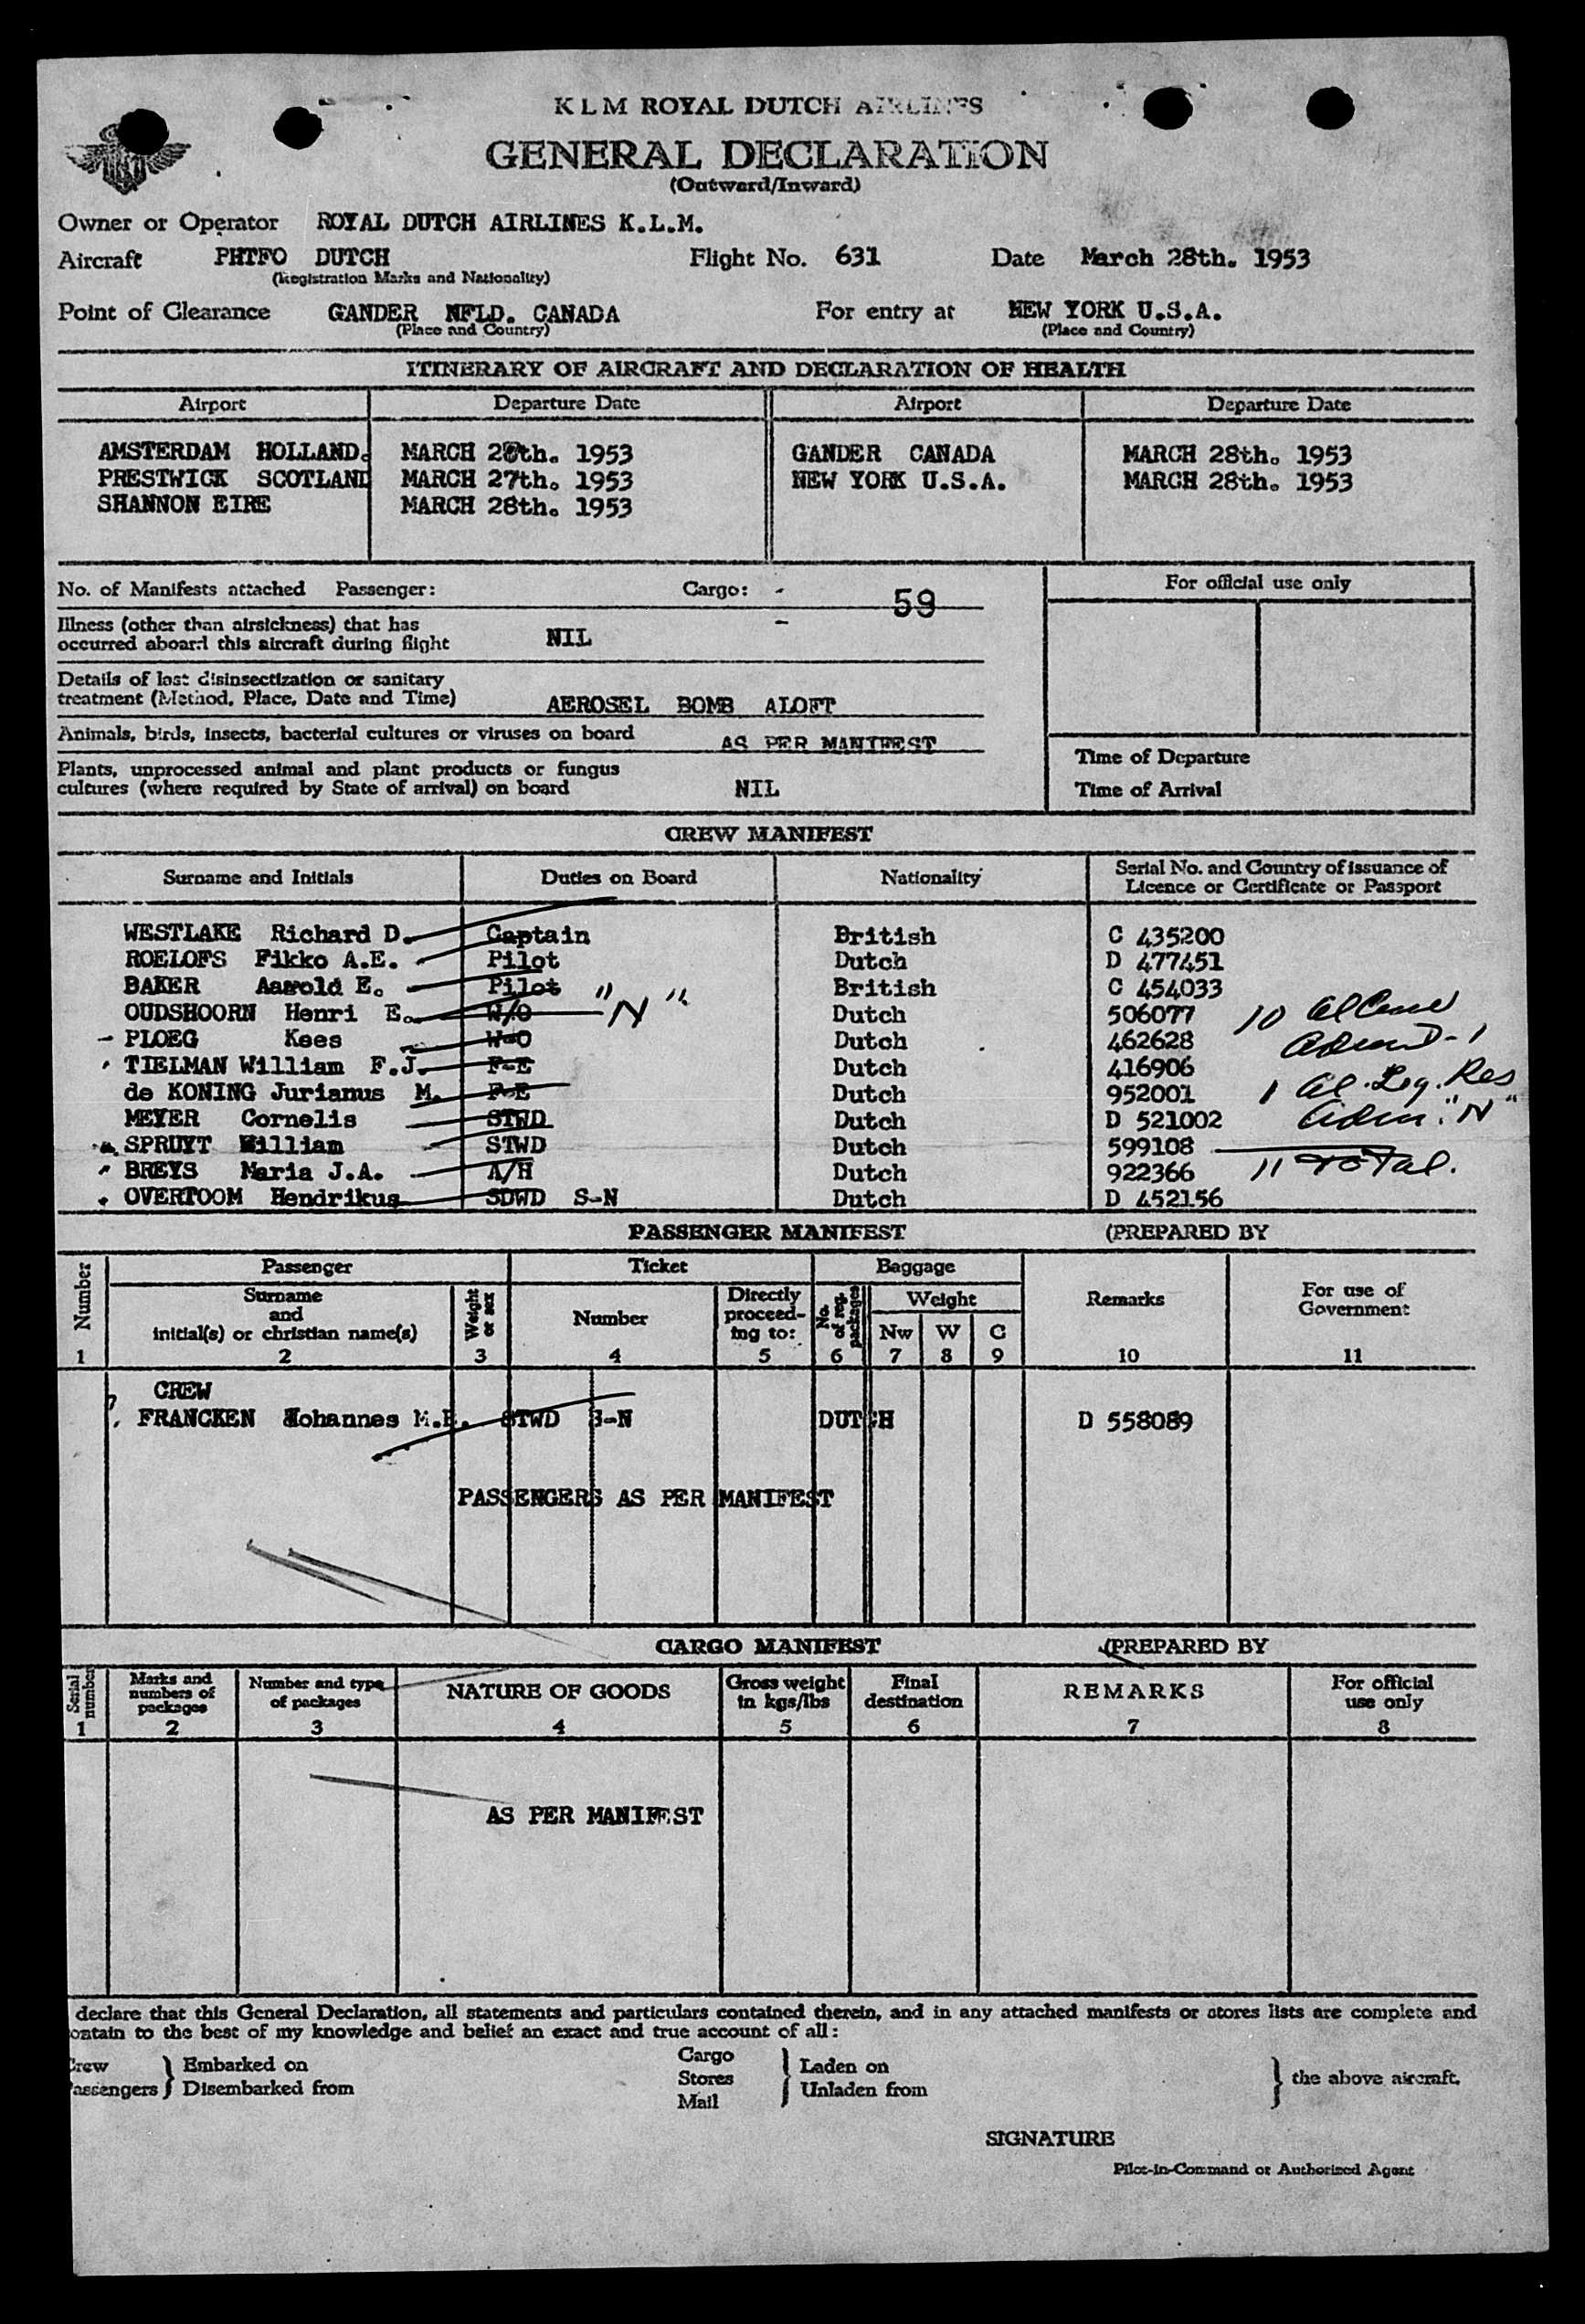 KLM ROYAL DUTCH AIRLINES
GENERAL DECLARATION
(Outward/Inward)
Owner or Operator ROYAL DUTCH AIRLINES K.L.M.
Aircraft PHTFO DUTCH Flight No. 631 Date March 28th. 1953
(Registration Marks and Nationality)
Point of Clearance GANDER NFLD. CANADA For entry at NEW YORK U.S.A.
(Place and Country) (Place and Country)
ITINERARY OF AIRCRAFT AND DECLARATION OF HEALTH
Airport Departure Date Airport Departure Date
AMSTERDAM HOLLAND. MARCH 2th. 1953 GANDER CANADA MARCH 28th. 1953
PRESTWICK SCOTLAND MARCH 27th. 1953 NEW YORK U.S.A. MARCH 28th. 1953
SHANNON EIRE MARCH 28th. 1953
No. of Manifests attached Passenger: Cargo: - 59 For official use only
Illness (other than airsickness) that has
occurred aboard this aircraft during flight NIL
Details of last disinsectization or sanitary
treatment (Method, Place, Date and Time) AEROSEL BOMB ALOFT
Animals, birds, insects, bacterial cultures or viruses on board AS PER MANIFEST
Plants, unprocessed animal and plant products or fungus Time of Departure
cultures (where required by State of arrival) on board NIL Time of Arrival
CREW MANIFEST
Surname and Initials Duties on Board Nationality Serial No. and Country of issuance of
Licence or Certificate or Passport
WESTLAKE Richard D. Captain British C 435200
ROELOFS Fikko A.E. Pilot Dutch D 477451
BAKER E. Pilot British C 454033
OUDSHOORN Henri E. W/O "N" Dutch 506077 10
PLOEG Kees W-O Dutch 462628 - 1
TIELMAN William F.J. F-E Dutch 416906
de KONING Jurianus M. F-E Dutch 952001 1 Al. Leg. Res
MEYER Cornelis STWD Dutch D 521002 Adm. "N"
SPRUYT William STWD Dutch 599108
BREYS Maria J.A. A/H Dutch 922366 11 Total.
OVERTOOM Hendrikus SDWD S-N Dutch D 452156
PASSENGER MANIFEST (PREPARED BY
Number Passenger Ticket Baggage Remarks For use of Government
Surname and initial(s) or christian name(s) Weight or sex Number Directly proceeding to: No. of reg. packages Weight
Nw W C
1 2 3 4 5 6 7 8 9 10 11
CREW
FRANCKEN Johannes M.B. STWD S-N DUTCH D 558089
PASSENGERS AS PER MANIFEST
CARGO MANIFEST (PREPARED BY
Serial number Marks and numbers of packages Number and type of packages NATURE OF GOODS Gross weight in kgs/lbs Final destination REMARKS For official use only
1 2 3 4 5 6 7 8
AS PER MANIFEST
declare that this General Declaration, all statements and particulars contained therein, and in any attached manifests or stores lists are complete and
ontain to the best of my knowledge and belief an exact and true account of all:
Crew } Embarked on Cargo } Laden on } the above aircraft.
assengers } Disembarked from Stores } Unladen from
Mail
SIGNATURE
Pilot-in-Command or Authorized Agent